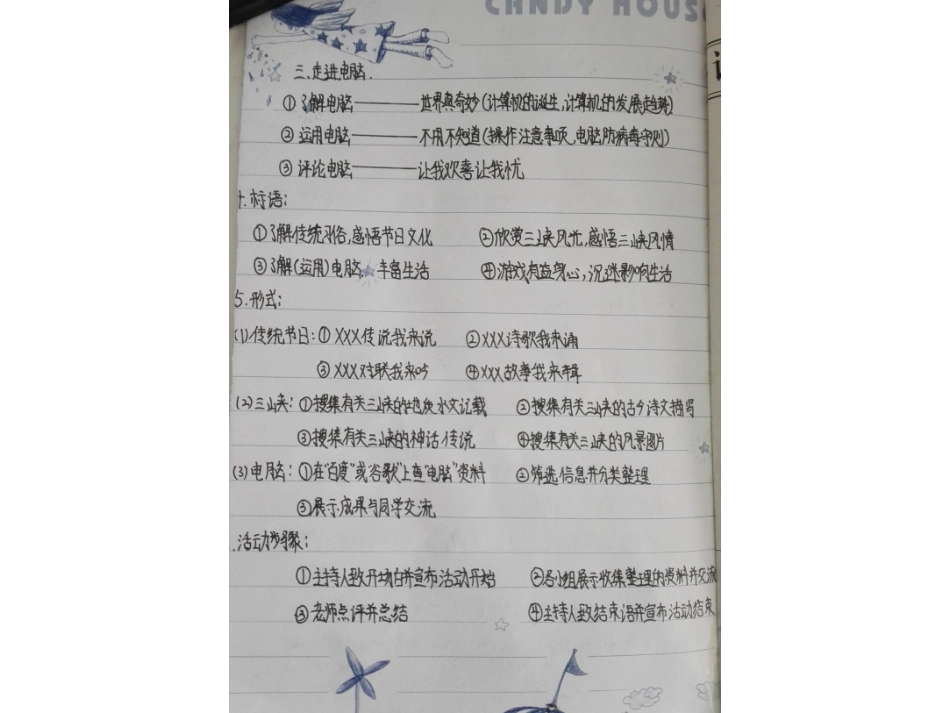 CANDY HOUS
三.走进电脑.
①了解电脑———世界真奇妙(计算机的诞生,计算机的发展趋势)
②运用电脑———不用不知道(操作注意事项,电脑防病毒守则)
③评论电脑———让我欢喜让我忧
标语:
①了解传统习俗,感悟节日文化 ②欣赏三峡风光,感悟三峡风情
③了解(运用)电脑, 丰富生活 ④游戏有益身心,沉迷影响生活
5.形式:
(1)传统节日:①XXX传说我来说 ②XXX诗歌我来诵
③XXX对联我来吟 ④XXX故事我来缉
(2)三峡:①搜集有关三峡的地质水文记载 ②搜集有关三峡的古今诗文描写
③搜集有关三峡的神话传说 ④搜集有关三峡的风景图片
(3)电脑:①在"百度"或"谷歌"上查"电脑"资料 ②筛选信息并分类整理
③展示成果与同学交流
.活动步骤:
①主持人致开场白并宣布活动开始 ②各小组展示收集整理的资料并交流
③老师点评并总结 ④主持人致结束语并宣布活动结束